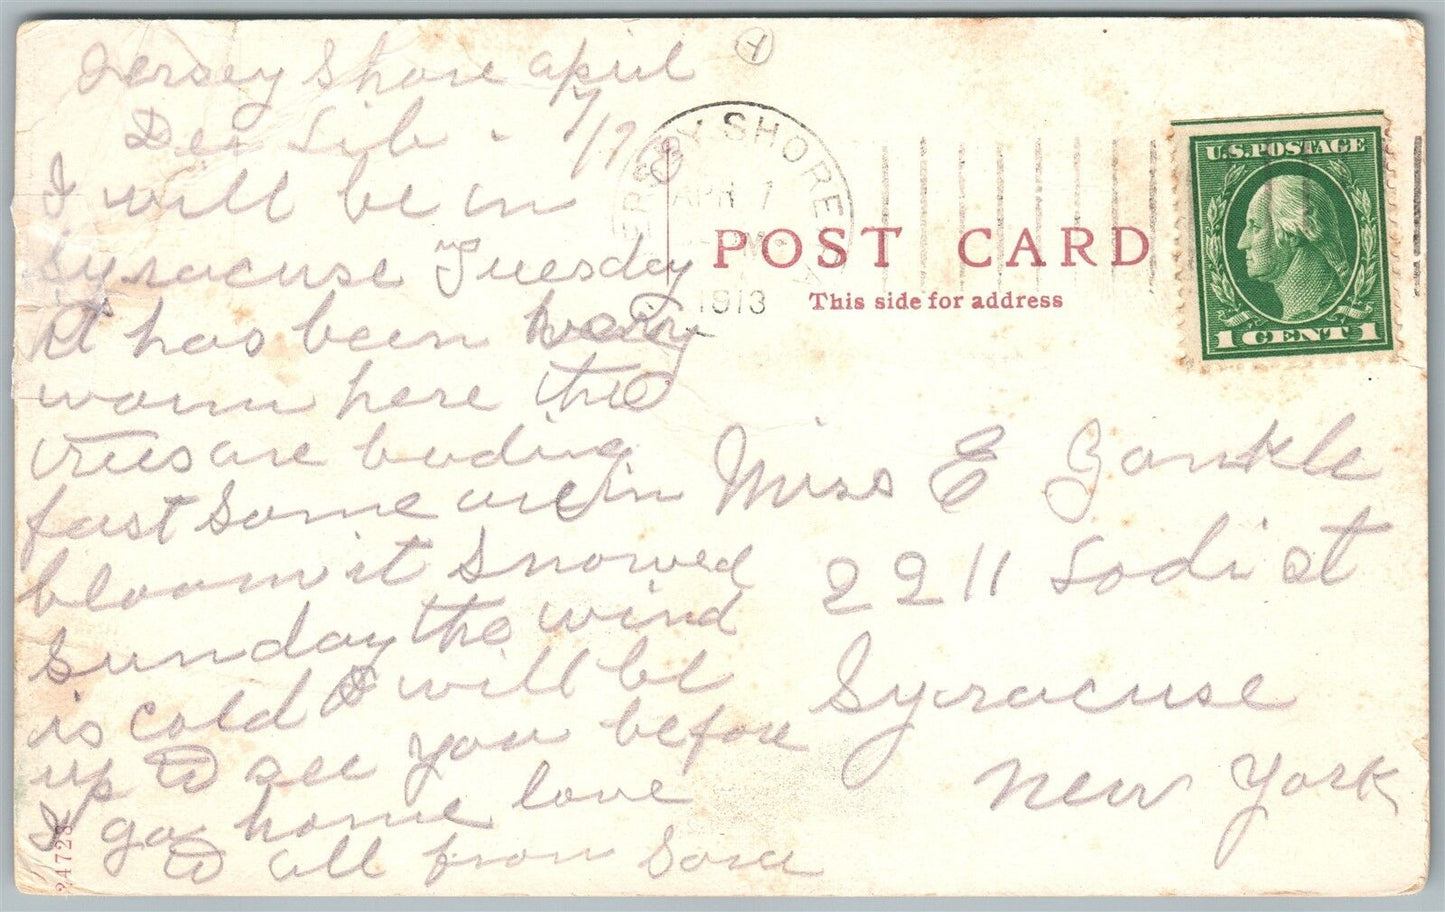 Jersey Shore april
7/13
Dea Sib -
I will be in
Syracuse Tuesday
it has been
warm here the
trees are buding
fast Some are in
bloom it Snowed
Sunday the wind
is cold I will be
up to see you before
I go home love
to all from Sara
24728
JERSEY SHORE
APR 7
1913
POST CARD
This side for address
U.S.POSTAGE
1 CENT 1
Miss E Gankle
2211 Lodi st
Syracuse
New York